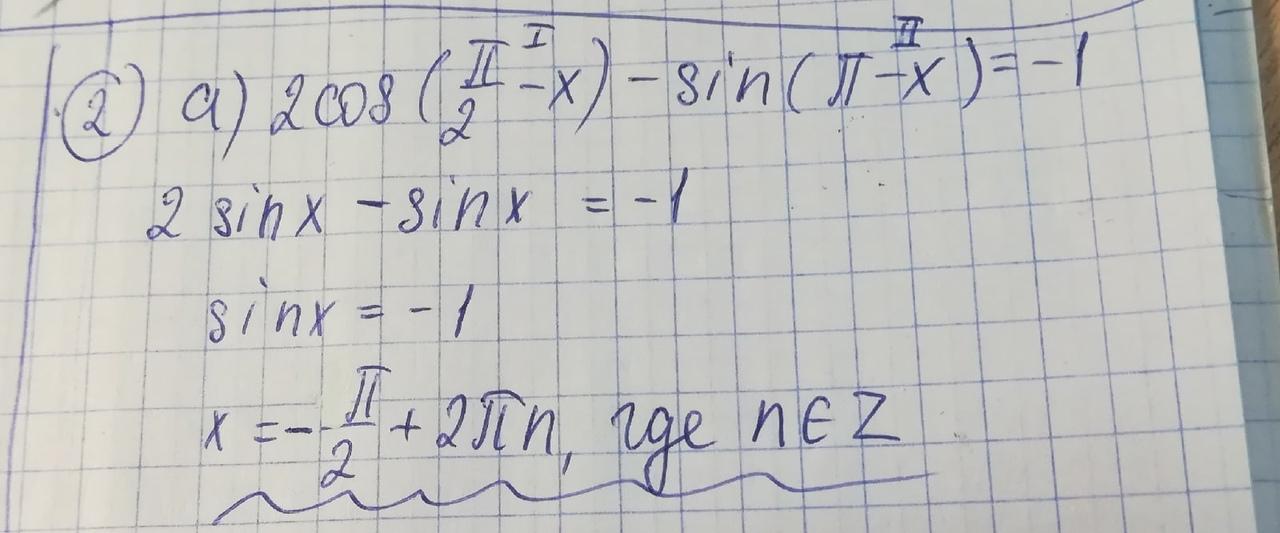 2) а) 2cos(π/2 - x) - sin(π - x) = -1
I II
2 sin x - sin x = -1
sin x = -1
x = -π/2 + 2πn, где n ∈ Z